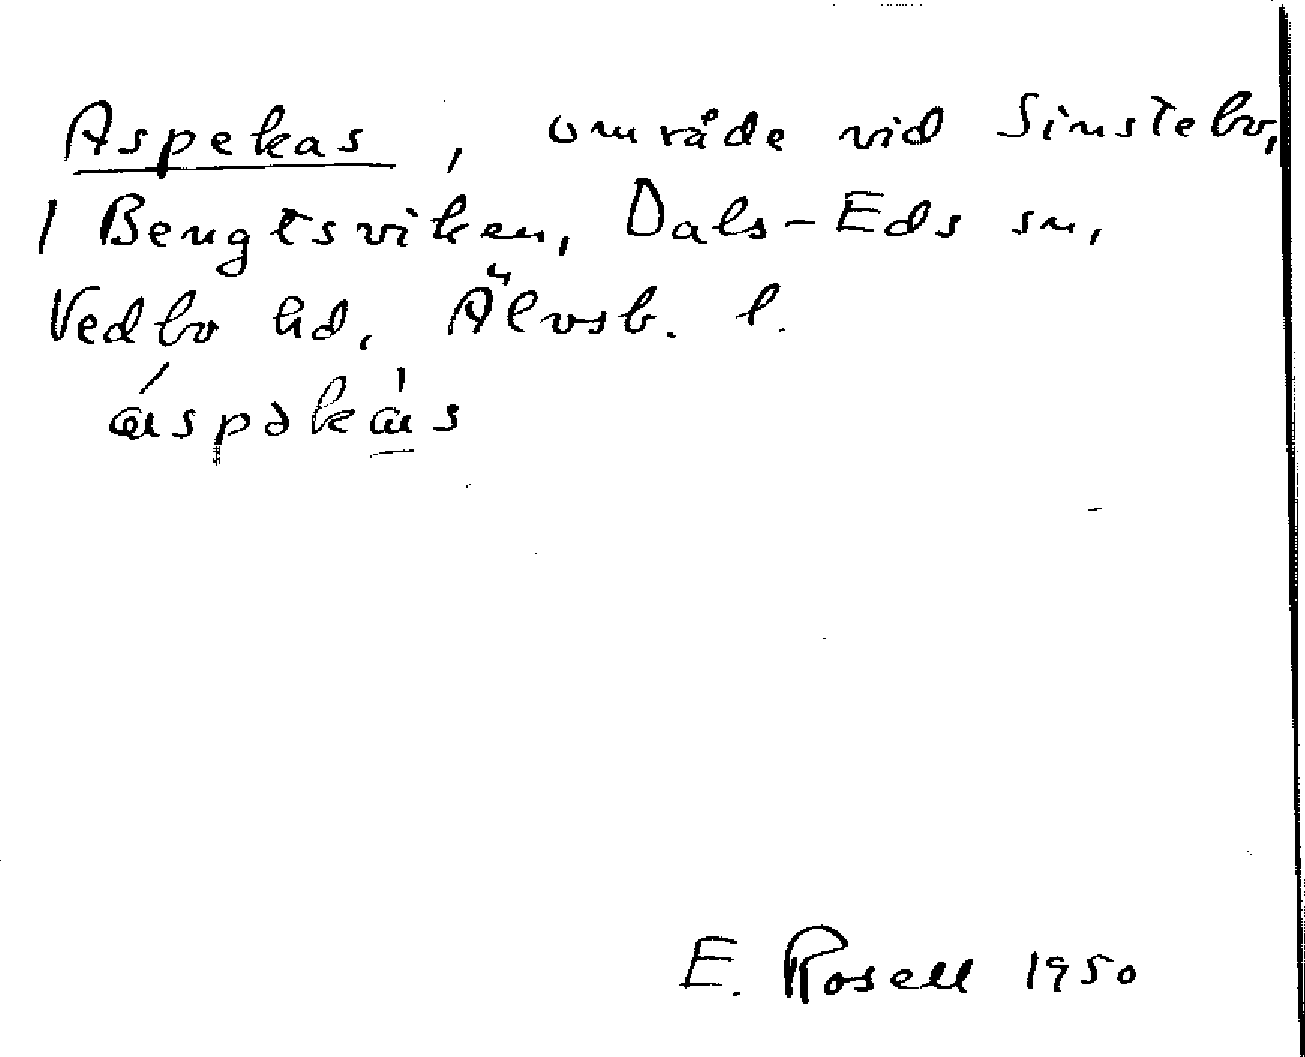 Aspekas, område vid Sinstebo,
1 Bengtsviken, Dals-Eds sn,
Vedbo hd, Älvsb. l.
áspəkás
E. Rosell 1950